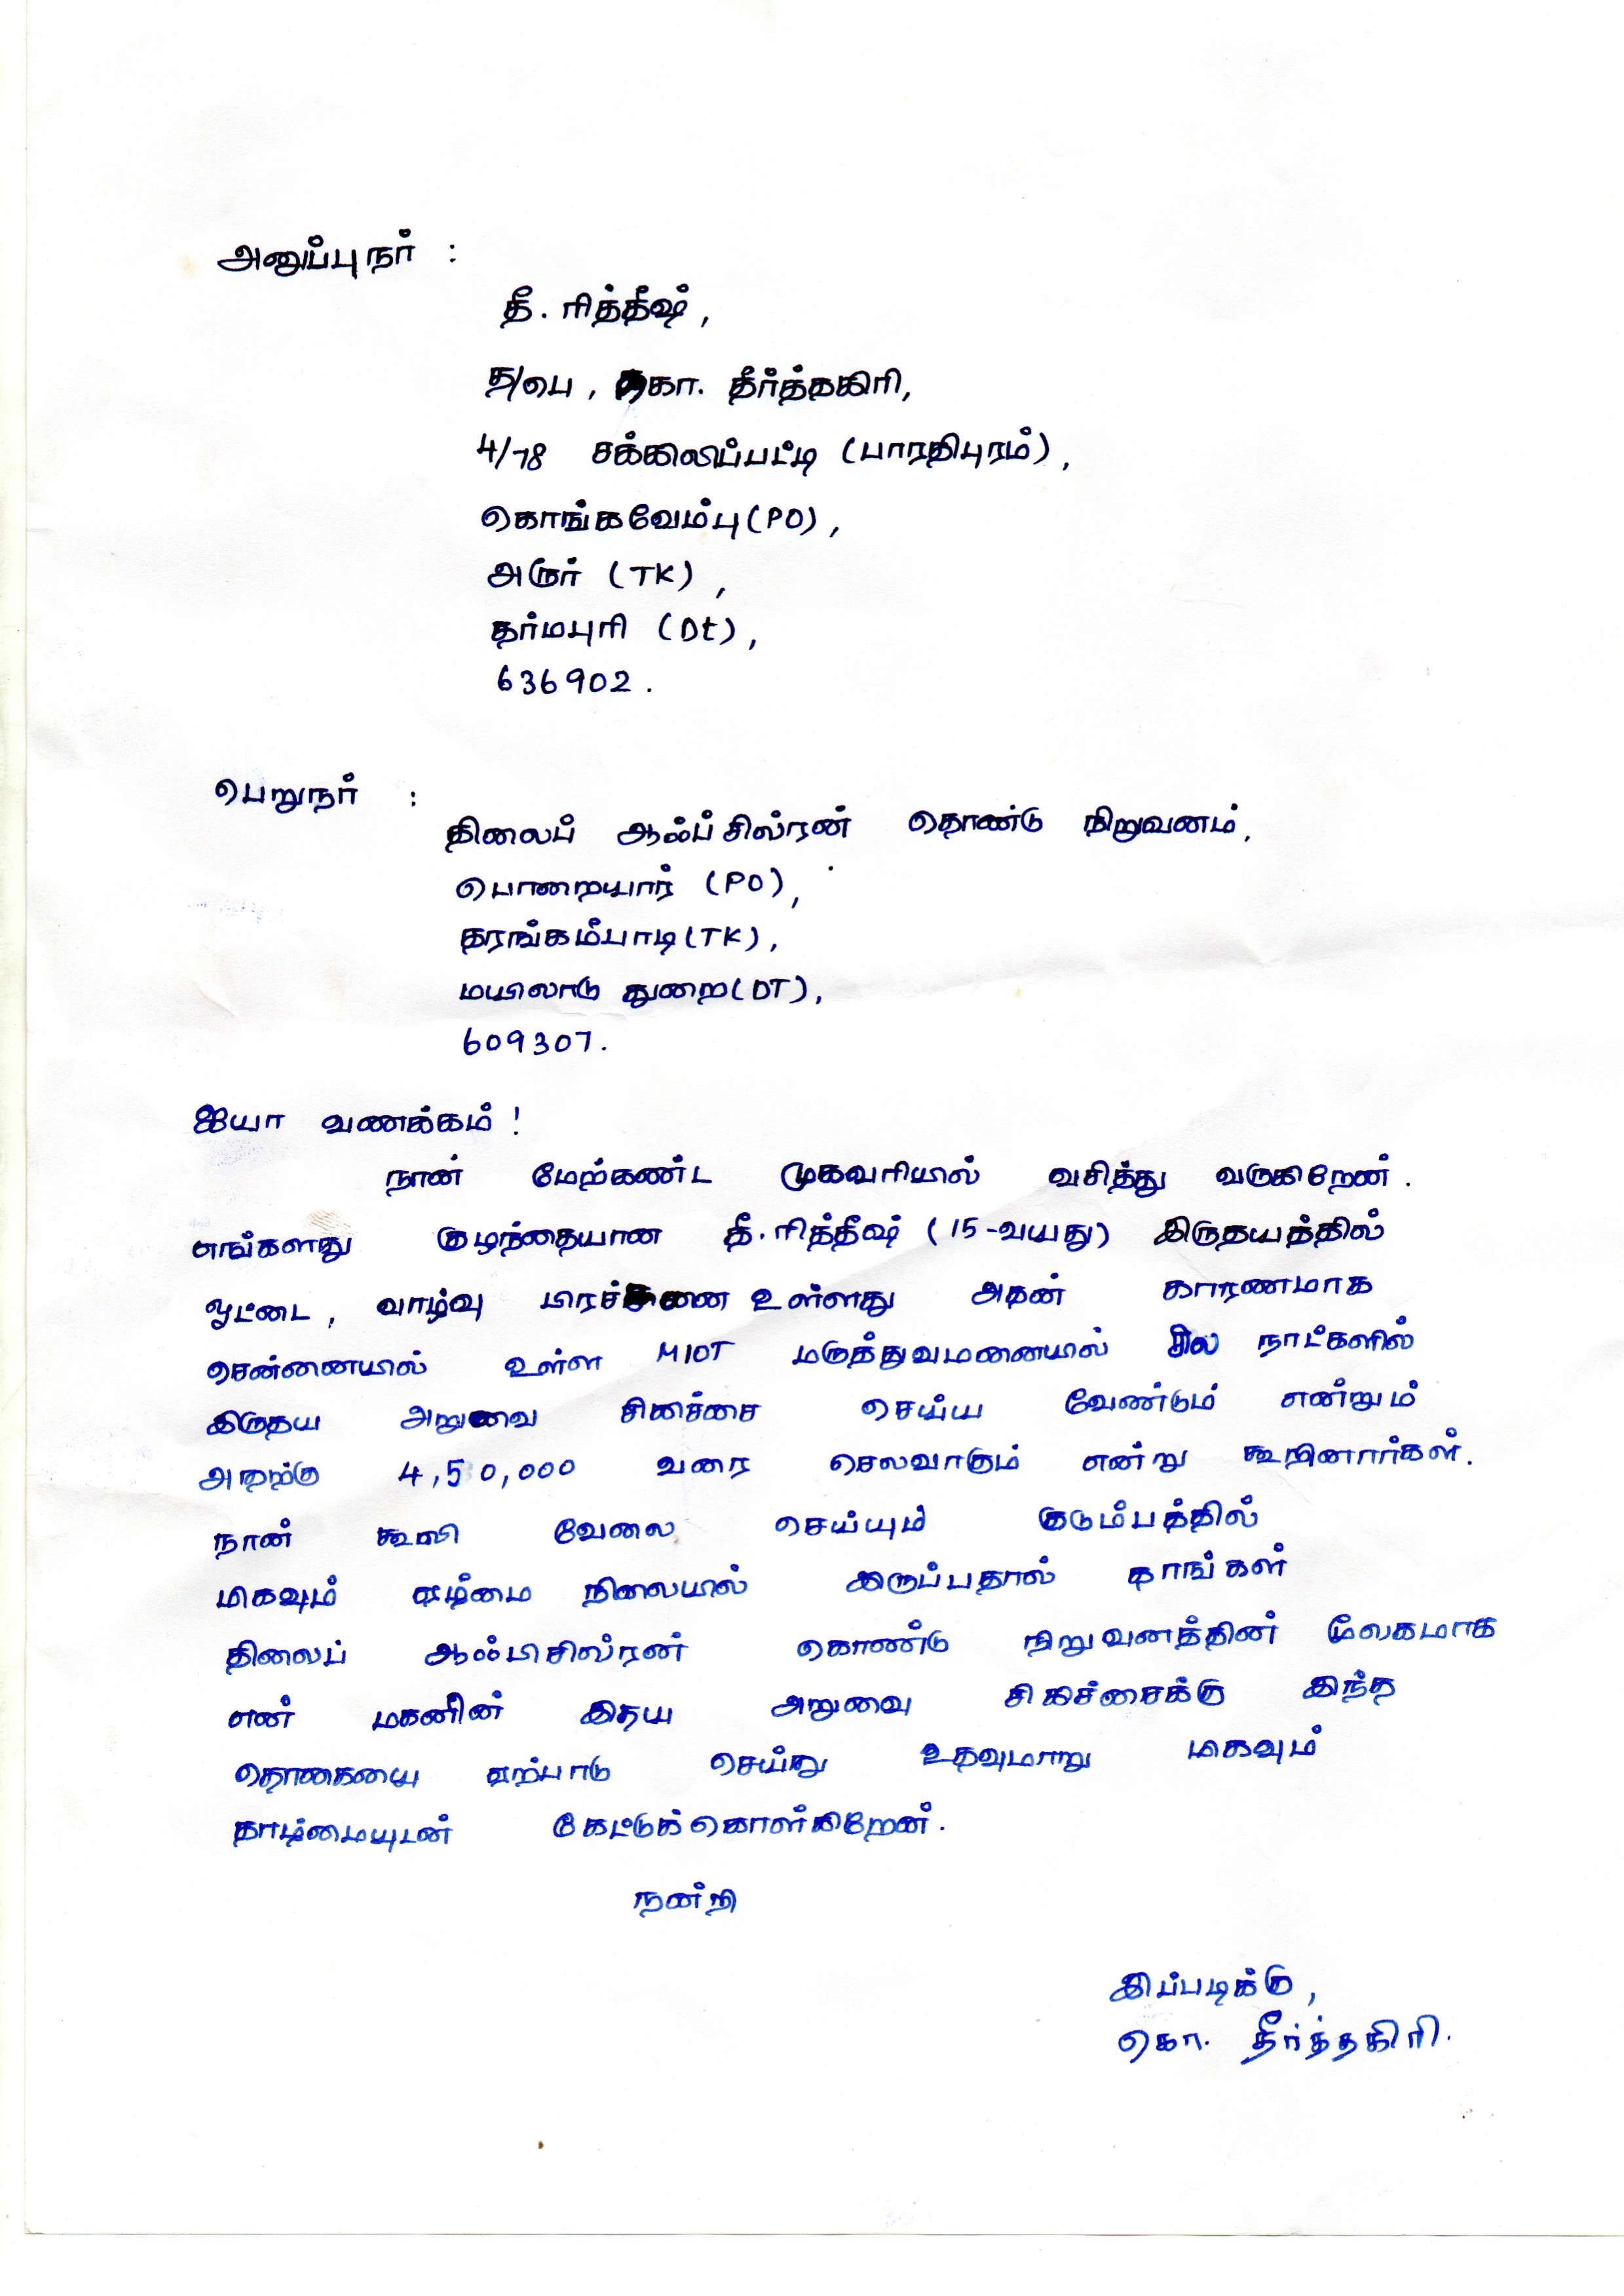 அனுப்புநர் :
தீ. ரித்தீஷ்,
த/பெ, கொ. தீர்த்தகிரி,
4/78 சக்கிலிப்பட்டி (பாரதிபுரம்),
கொங்கவேம்பு (PO),
அரூர் (TK),
தர்மபுரி (Dt),
636902.
பெறுநர் :
திலைப் ஆஃப் சில்ரண் தொண்டு நிறுவனம்,
பொறையார் (PO),
தரங்கம்பாடி (TK),
மயிலாடு துறை (DT),
609307.
ஐயா வணக்கம் !
நான் மேற்கண்ட முகவரியில் வசித்து வருகிறேன்.
எங்களது குழந்தையான தீ. ரித்தீஷ் (15-வயது) இருதயத்தில்
ஓட்டை, வாழ்வு பிரச்சனை உள்ளது அதன் காரணமாக
சென்னையில் உள்ள MIOT மருத்துவமனையில் சில நாட்களில்
இருதய அறுவை சிகிச்சை செய்ய வேண்டும் என்றும்
அதற்கு 4,50,000 வரை செலவாகும் என்று கூறினார்கள்.
நான் கூலி வேலை செய்யும் குடும்பத்தில்
மிகவும் ஏழ்மை நிலையில் இருப்பதால் தாங்கள்
திலைப் ஆஃப்சில்ரண் தொண்டு நிறுவனத்தின் மூலமாக
என் மகனின் இதய அறுவை சிகிச்சைக்கு இந்த
தொகையை ஏற்பாடு செய்து உதவுமாறு மிகவும்
தாழ்மையுடன் கேட்டுக்கொள்கிறேன்.
நன்றி
இப்படிக்கு,
கொ. தீர்த்தகிரி.